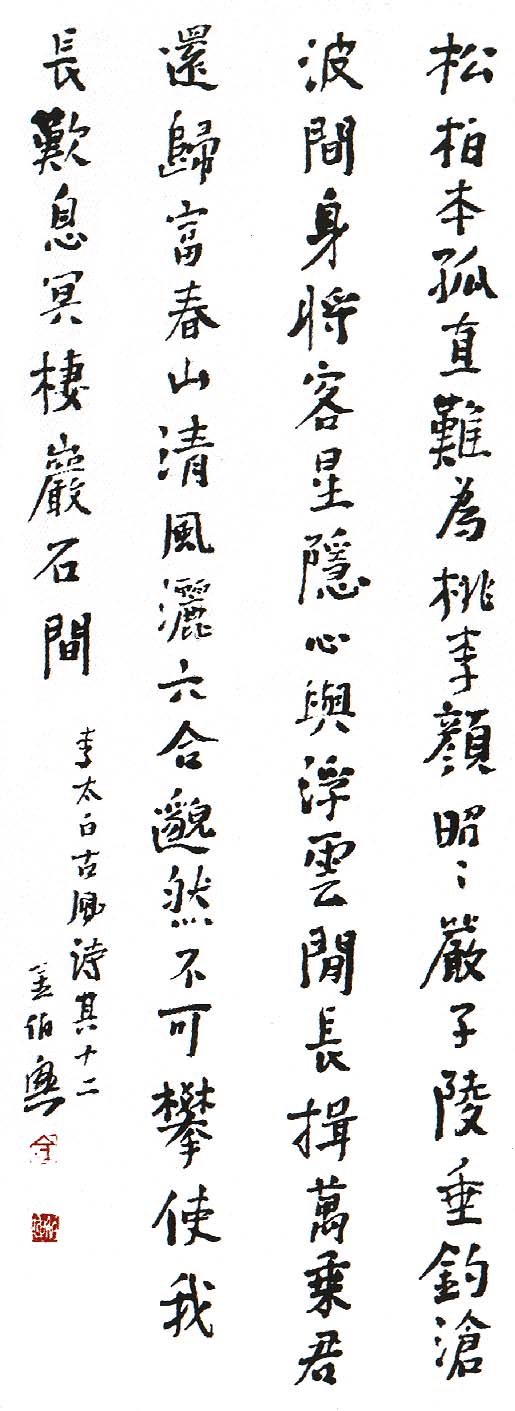 松柏本孤直難為桃李顏昭〻嚴子陵垂釣滄
波間身將客星隱心與浮雲閒長揖萬乘君
還歸富春山清風灑六合邈然不可攀使我
長歎息冥棲巖石間
李太白古風詩其十二
金伯興